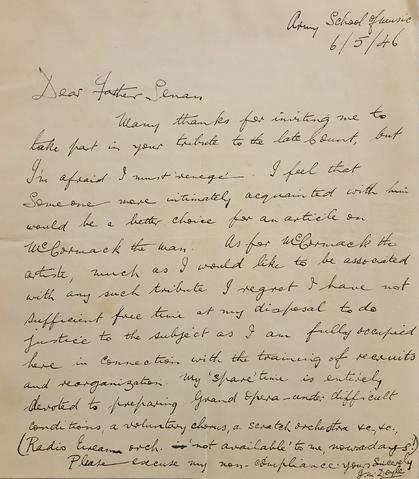 Army School of music
6/5/46
Dear Father Senan,
Many thanks for inviting me to
take part in your tribute to the late Count, but
I'm afraid I must renege. I feel that
Someone more intimately acquainted with him
would be a better choice for an article on
McCormack the man. As for McCormack the
artiste, much as I would like to be associated
with any such tribute I regret I have not
sufficient free time at my disposal to do
justice to the subject as I am fully occupied
here in connection with the training of recruits
and reorganization. My 'spare' time is entirely
devoted to preparing Grand Opera - under difficult
conditions, a voluntary chorus, a scratch orchestra &c, &c.,
(Radio Eireann orch. 'not available' to me, nowadays!)
Please excuse my non-compliance yours Sincerely
J.M. Doyle